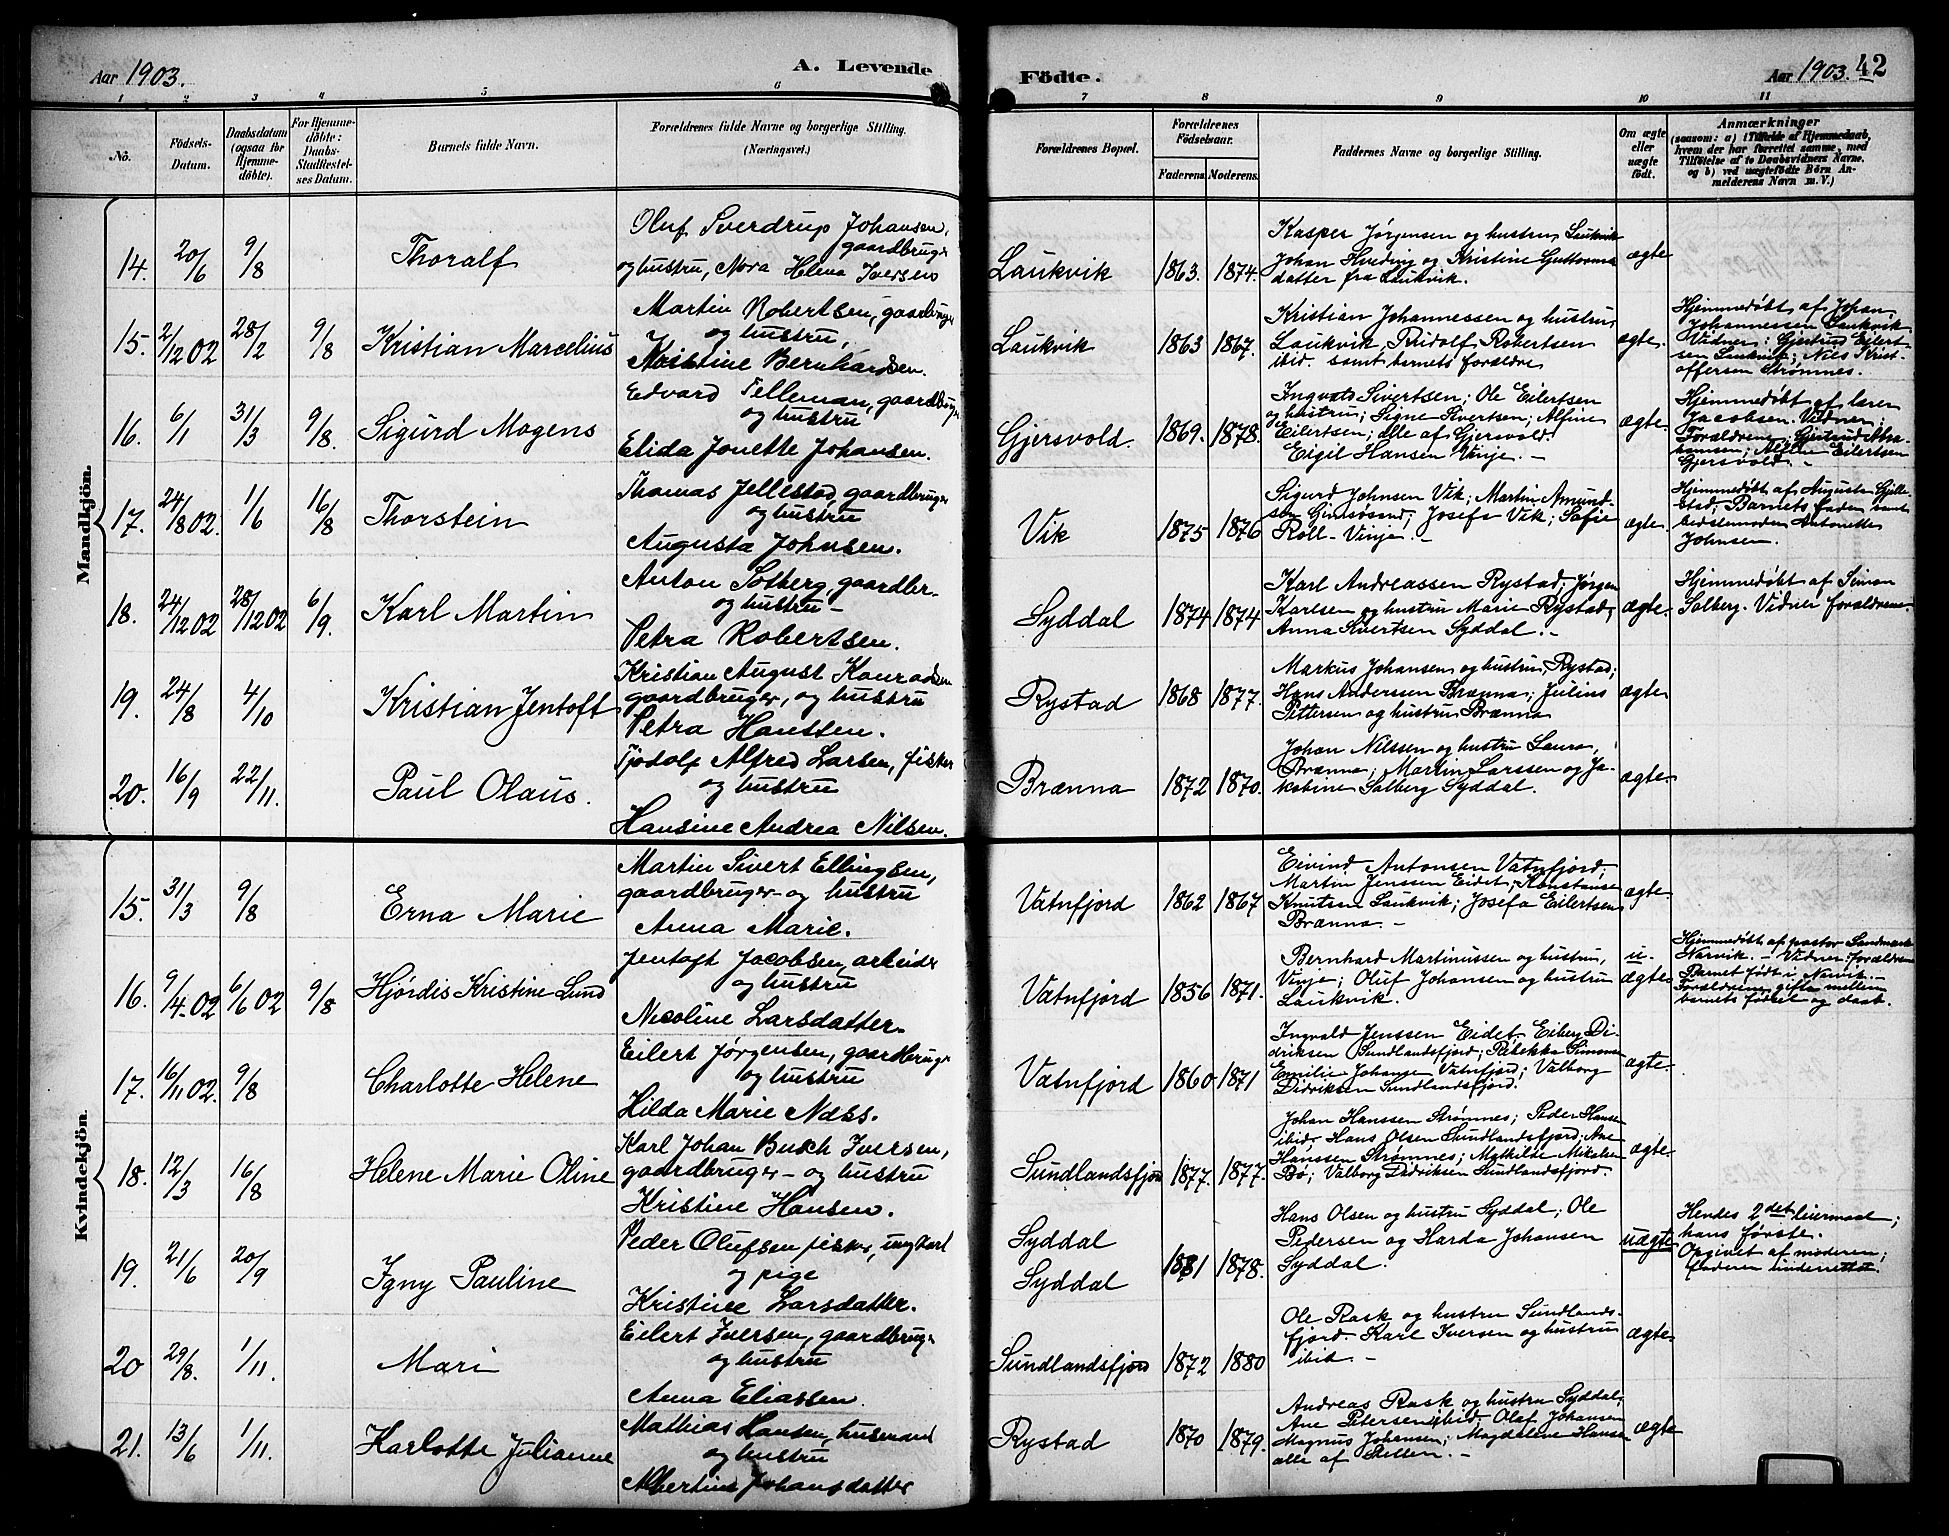 Aar 1903. A. Levende Födte. Aar 1903. 42
1 2 3 4 5 6 7 8 9 10 11
Nô. Födsels-Datum. Daabsdatum (ogsaa for Hjemme-döbte). For Hjemme-döbte: Daabs-Stadfæstel-ses Datum. Barnets fulde Navn. Forældrenes fulde Navne og borgerlige Stilling. (Næringsvei.) Forældrenes Bopæl. Forældrenes Födselsaar. Faderens. Moderens. Faddernes Navne og borgerlige Stilling. Om ægte eller uægte födt. Anmærkninger (saasom: a) i Tilfælde af Hjemmedaab, hvem der har forrettet samme, med Tilföielse af to Daabsvidners Navne, og b) ved uægtefödte Börn An-melderens Navn m. V.)
Mandkjön.
14. 20/6 9/8 Thoralf
Oluf Sverdrup Johansen, gaardbruger
og hustru, Nora Helena Iversen
Laukvik 1863. 1874.
Kasper Jørgensen og hustru, Laukvik
Johan Hveding og Kristine Guttorms
datter fra Laukvik.
ægte
15. 2/12 02 28/2 9/8 Kristian Marcelius
Martin Robertsen, gaardbruger
og hustru,
Kristine Bernhardsen.
Laukvik 1863 1867.
Kristian Johannessen og hustru,
Laukvik, Ridolf Robertsen
ibid. samt barnets forældre
ægte.
Hjemmedøbt af Johan
Johannessen Laukvik.
Vidner: Gjertrud Eilert-
sen Laukvik; Nils Krist-
offersen Strømnes.
16. 6/1 31/3 9/8. Sigurd Mogens
Edvard Telleman, gaardbruger
og hustru
Elida Jonette Johansen.
Gjersvold. 1869. 1878.
Ingvald Sivertsen; Ole Eilertsen
og hustru; Signe Sivertsen; Alfine
Eilertsen; alle af Gjersvold.
Eigil Hansen Vinje. -
ægte.
Hjemmedøbt af lærer
Jacobsen. Vidner;
Forældrene; Gjertrud Abra-
hamsen; Alfine Eilertsen
Gjersvold. -
17. 24/8 02. 1/6 16/8 Thorstein
Thomas Jellestad, gaardbruger
og hustru
Augusta Johnsen.
Vik 1875 1876
Sigurd Johnsen Vik; Martin Amund-
sen Gimsøsund; Josefa Vik; Sofie
Roll-Vinje. -
ægte
Hjemmedøbt af Augusta Gjelle-
stad; Barnets fader samt
bedstemoder Antonette
Johnsen.
18. 24/12 02 28/12 02 6/9. Karl Martin
Anton Solberg, gaardbr.
og hustru -
Petra Robertsen.
Syddal 1874 1874
Karl Andreassen Rystad; Jørgen
Karlsen og hustru Marie Rystad;
Anna Sivertsen Syddal. -
ægte.
Hjemmedøbt af Simon
Solberg. Vidner forældrene.
19. 24/8 4/10 Kristian Jentoft
Kristian August Konradsen
gaardbruger, og hustru
Petra Hanssen.
Rystad 1868 1877.
Markus Johansen og hustru, Rystad;
Hans Anderssen Brænna; Julius
Pettersen og hustru Brænna
ægte
20. 16/9 22/11. Paul Olaus.
Tjodolf Alfred Larsen, fisker
og hustru
Hansine Andrea Nilsen.
Brænna 1872 1870.
Johan Nilssen og hustru Laura,
Brænna; Martin Larssen og Ja-
kobine Solberg Syddal.
ægte.
Kvindekjön.
15. 31/3 9/8 Erna Marie
Martin Sivert Ellingsen,
gaardbruger - og hustru
Anna Marie.
Vatnfjord 1862 1867
Eivind Antonsen Vatnfjord;
Martin Jenssen Eidet; Konstanse
Knutsen Laukvik; Josefa Eilertsen
Brænna. -
ægte.
16. 9/4 02 6/6 02 9/8 Hjördis Kristine Lund
Jentoft Jacobsen, arbeider
og hustru
Nicoline Larsdatter.
Vatnfjord 1856 1871.
Bernhard Martinussen og hustru,
Vinje; Oluf Johansen og hustru
Laukvik.
u-
ægte
Hjemmedøbt af pastor Sandmark
Narvik. - Vidner: forældrene
Barnet født i Narvik. -
Forældrene gifte mellem
barnets fødsel og daab.
17. 16/11 02. 9/8 Charlotte Helene
Eilert Jørgensen, gaardbruger
og hustru
Hilda Marie Næss.
Vatnfjord 1860 1871
Ingvald Jenssen Eidet; Eiberg Di-
driksen Sundlandsfjord; Rebekka Simons
Emilie Johanse Vatnfjord; Valborg
Didriksen Sundlandsfjord.
ægte.
18. 12/3 16/8 Helene Marie Oline
Karl Johan Busch Iversen,
gaardbruger - og hustru
Kristine Hansen.
Sundlandsfjord 1877. 1877.
Johan Hanssen Strømnes; Peder Hanse
ibid; Hans Olsen Sundlandsfjord; Ane
Hanssen Strømnes; Mathilde Mikalsen
Bø; Valborg Didriksen Sundlandsfjord.
ægte
19. 21/6 20/9 Igny Pauline
Peder Olufsen fisker, ungkarl
og pige
Kristine Larsdatter.
Syddal
Syddal 1881 1878.
Hans Olsen og hustru Syddal; Ole
Pedersen og Harda Johansen
Syddal.
uægte
Hendes 2det leiermaal;
hans første.
Opgivet af moderen;
faderen underrettet.
20 29/8. 1/11. Mari
Eilert Iversen, gaardbruger
og hustru
Anna Eliassen.
Sundlandsfjord 1872 1880
Ole Rask og hustru Sundlands-
fjord. Karl Iversen og hustru
ibid. -
ægte
21. 13/6 1/11. Karlotte Julianne
Mathias Hansen, husmand
og hustru
Albertine Johansdatter
Rystad 1870 1879.
Andreas Rask og hustru Syddal;
Ane Petersen ibid; Olaf Johansen
Magnus Johansen; Magdalene Hansen
alle af Sellen. -
ægte